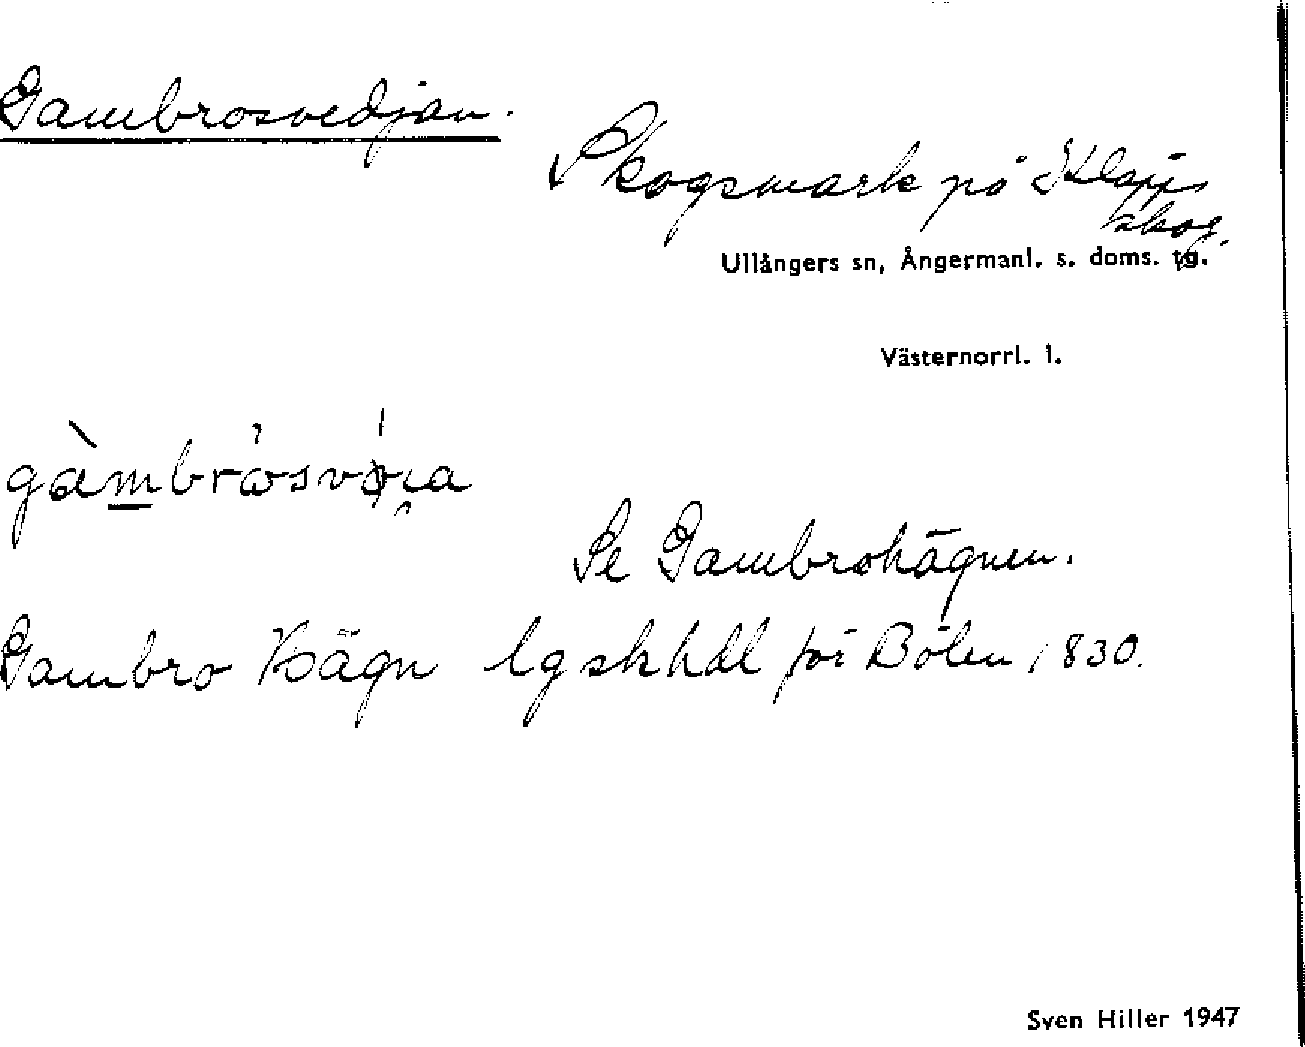 Gambrosvedjan.
Skogsmark på Kläpps
skog.
Ullångers sn, Ångermanl. s. doms. tg.
Västernorrl. l.
Se Gambrohägnen.
Gambro Hägn lgskhdl för Bölen 1830.
Sven Hiller 1947